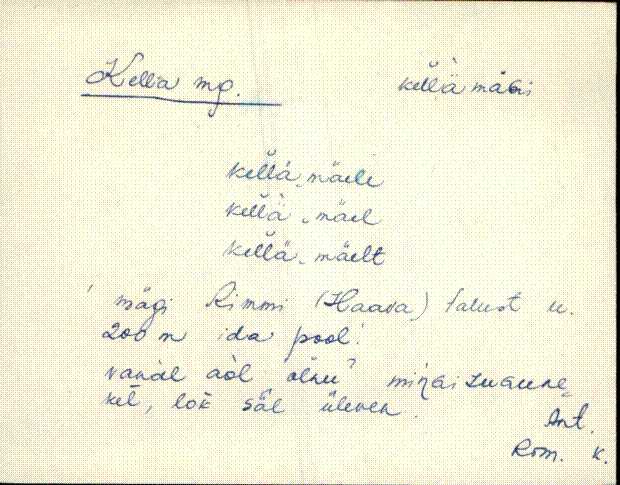 Kellä mg. kellä mägi
kellä mäele
kellä mäel
kellä mäelt
mägi Rimmi (Haava) talust u.
200 m ida pool.
vanal aol olnu
kel, lok säl üleven.
Ant.
Rom. k.